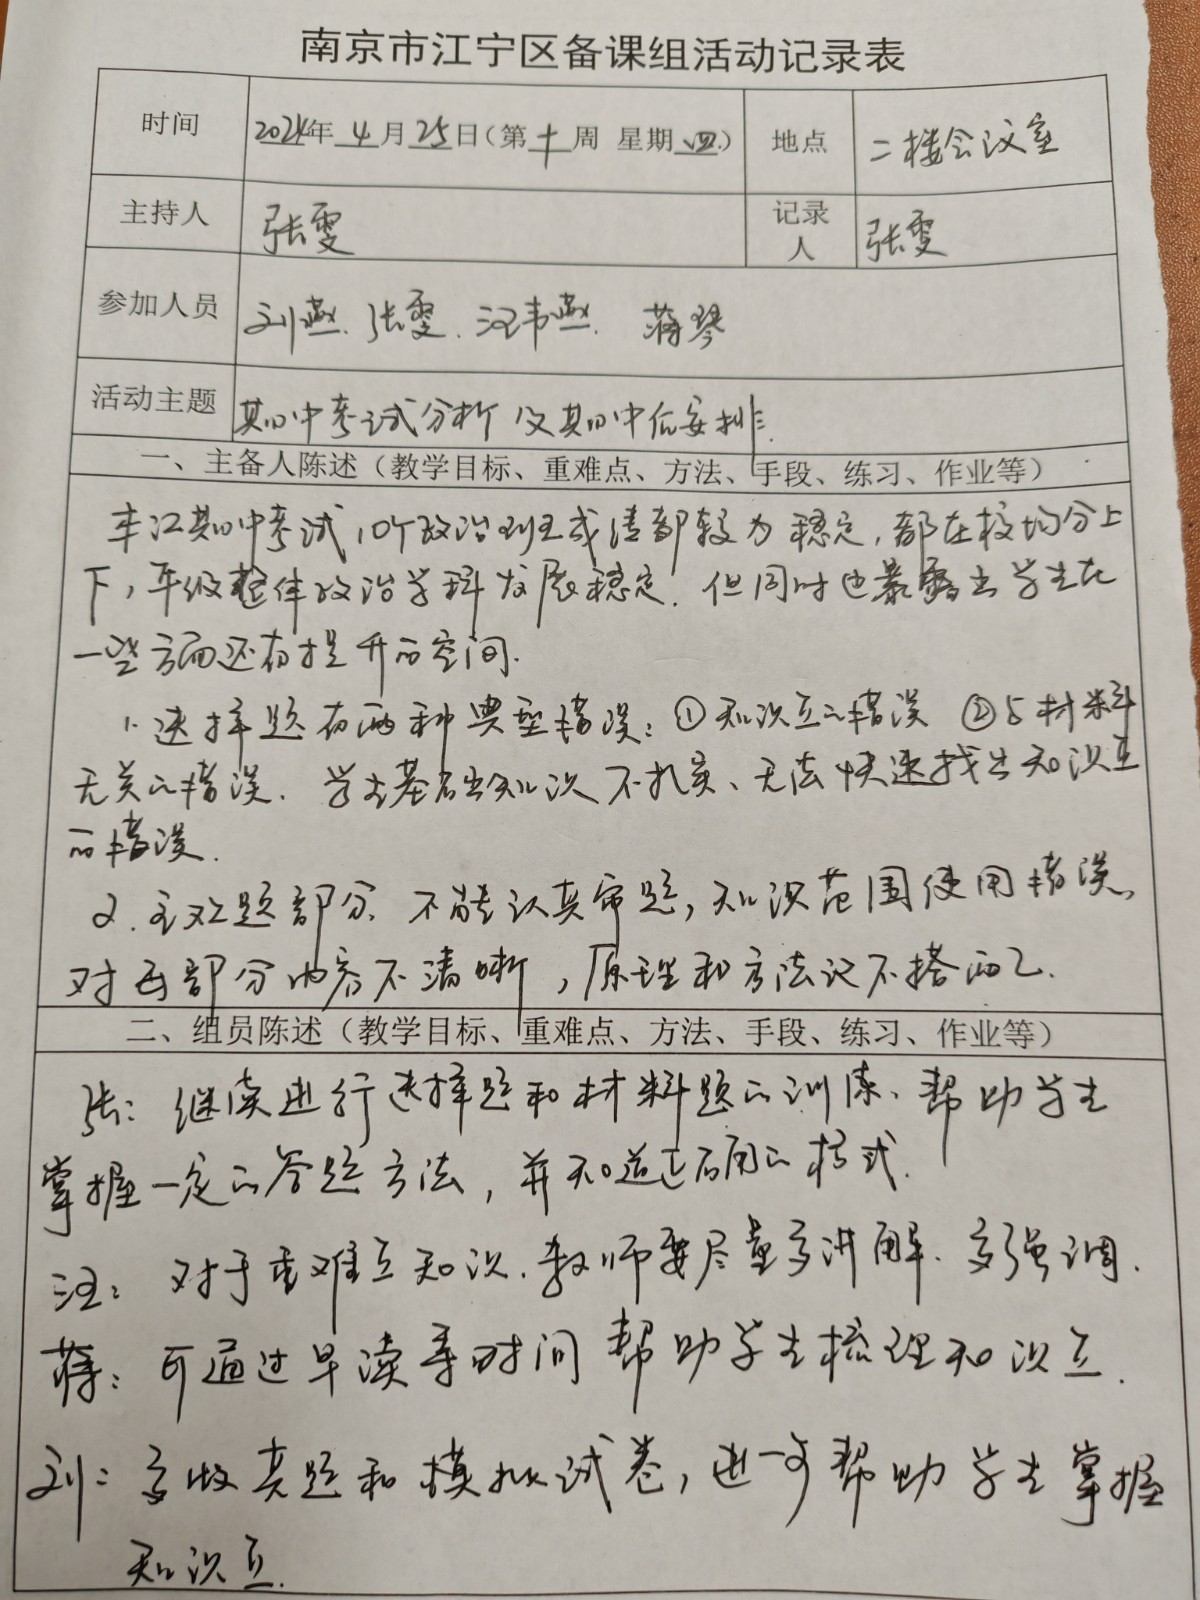 南京市江宁区备课组活动记录表
时间 2024年 4 月 25 日(第 十 周 星期 四) 地点 二楼会议室
主持人 张雯 记录人 张雯
参加人员 刘燕、张雯、汪韦燕、蒋琴
活动主题 期中考试分析及期中后安排
一、主备人陈述（教学目标、重难点、方法、手段、练习、作业等）
本次期中考试,10个政治班级成绩都较为稳定,都在校均分上
下,年级整体政治学科发展稳定.但同时也暴露出学生在
一些方面还有提升的空间.
1.选择题有两种典型错误:①知识点的错误 ②与材料
无关的错误.学生基础知识不扎实、无法快速找出知识点
的错误.
2.主观题部分.不能认真审题,知识范围使用错误,
对各部分内容不清晰,原理和方法论不搭而已.
二、组员陈述（教学目标、重难点、方法、手段、练习、作业等）
张:继续进行选择题和材料题的训练、帮助学生
掌握一定的答题方法,并知道正确的模式.
汪:对于重难点知识.教师要尽量多讲解.多强调.
蒋:可通过早读等时间帮助学生梳理知识点.
刘:多做真题和模拟试卷,进一步帮助学生掌握
知识点.